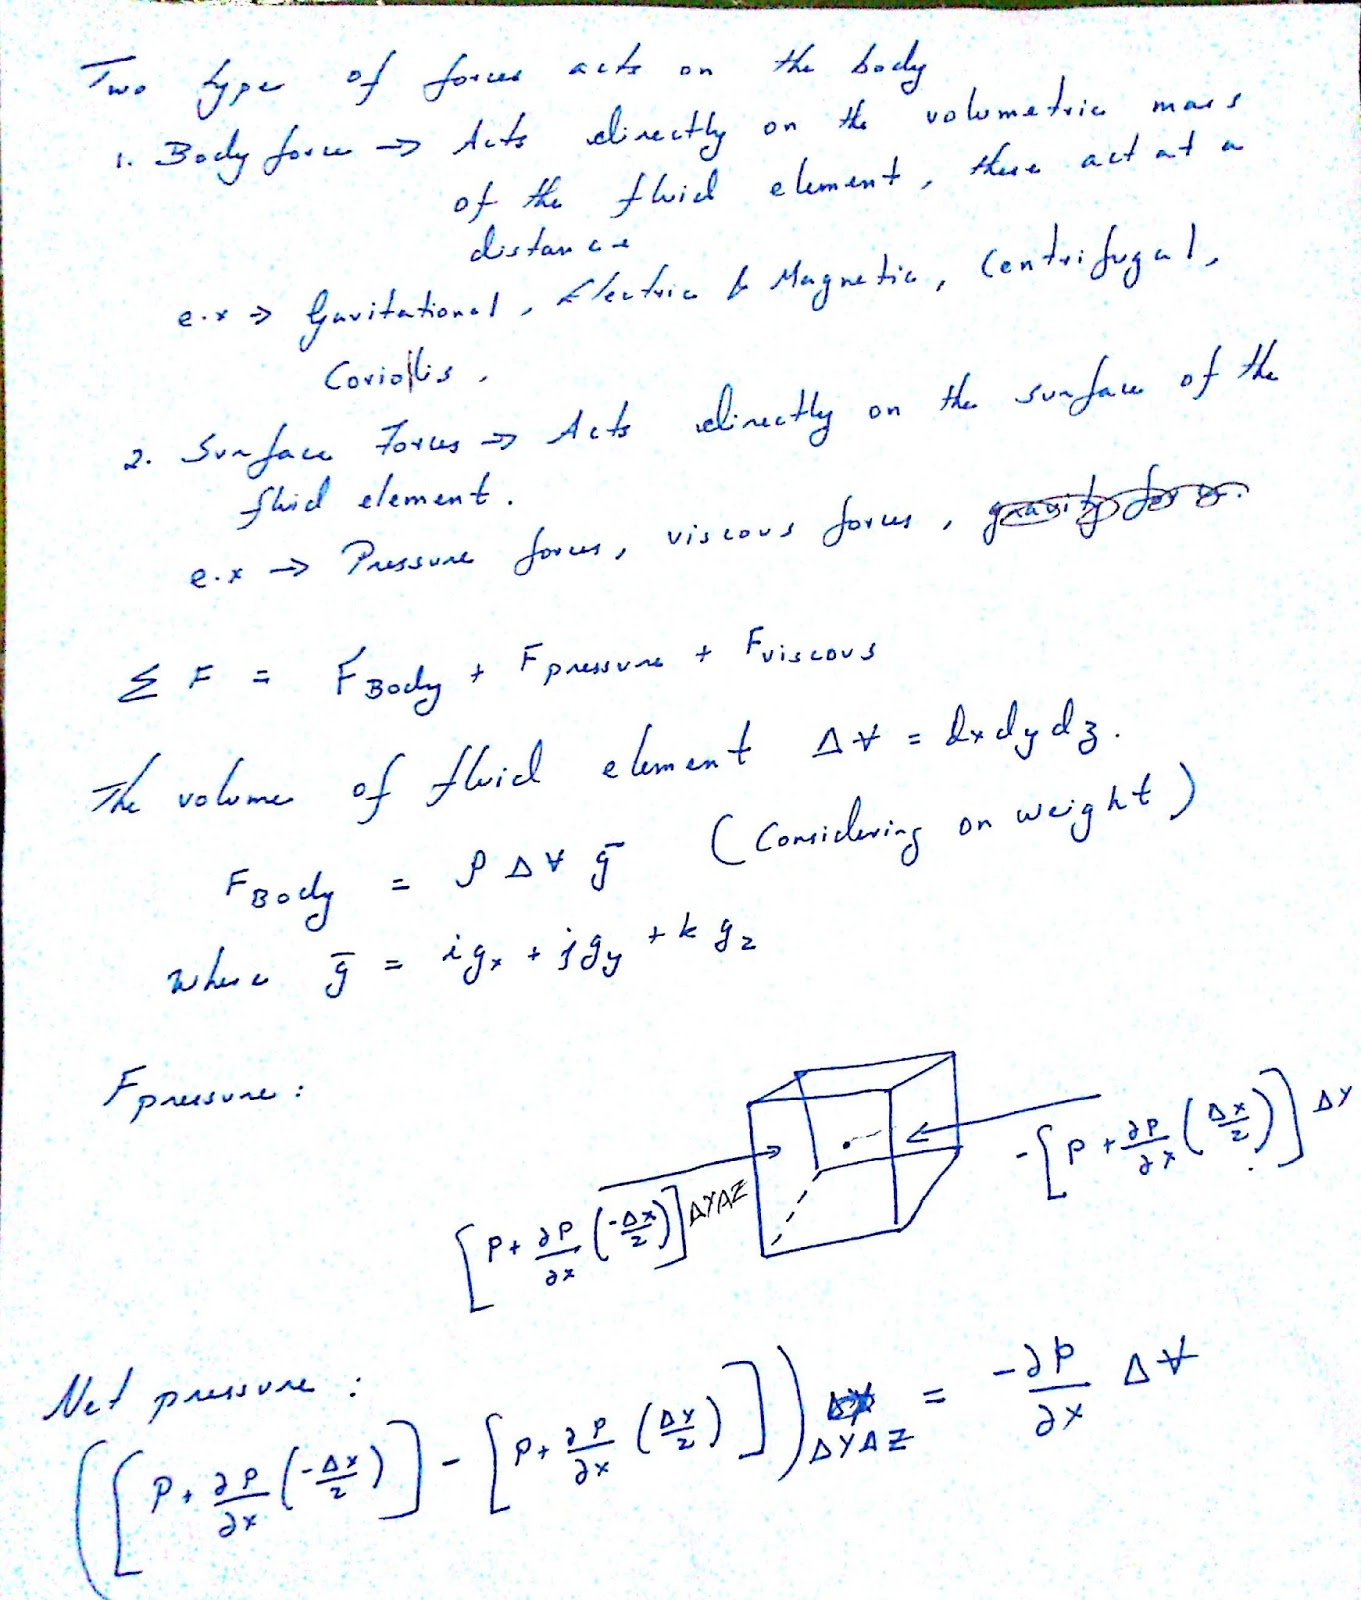 Two type of forces acts on the body
1. Body force → Acts directly on the volumetric mass
of the fluid element, these act at a
distance
e.x → Gavitational, Electric & Magnetic, Centrifugal,
Coriollis,
2. Surface Forces → Acts directly on the surface of the
fluid element.
e.x → Pressure forces, viscous forces, gravity forces.
Σ F = F Body + F pressure + F viscous
The volume of fluid element ΔV̶ = dxdydz.
F Body = ρ ΔV̶ g̅ (Considering on weight)
where g̅ = igx + jgy + kgz
F pressure :
- [P + ∂P/∂x (Δx/2)] ΔY
[P + ∂P/∂x (-Δx/2)] ΔYΔZ
Net pressure :
([P + ∂P/∂x (-Δx/2)] - [P + ∂P/∂x (Δx/2)]) ΔYΔZ = -∂p/∂x ΔV̶